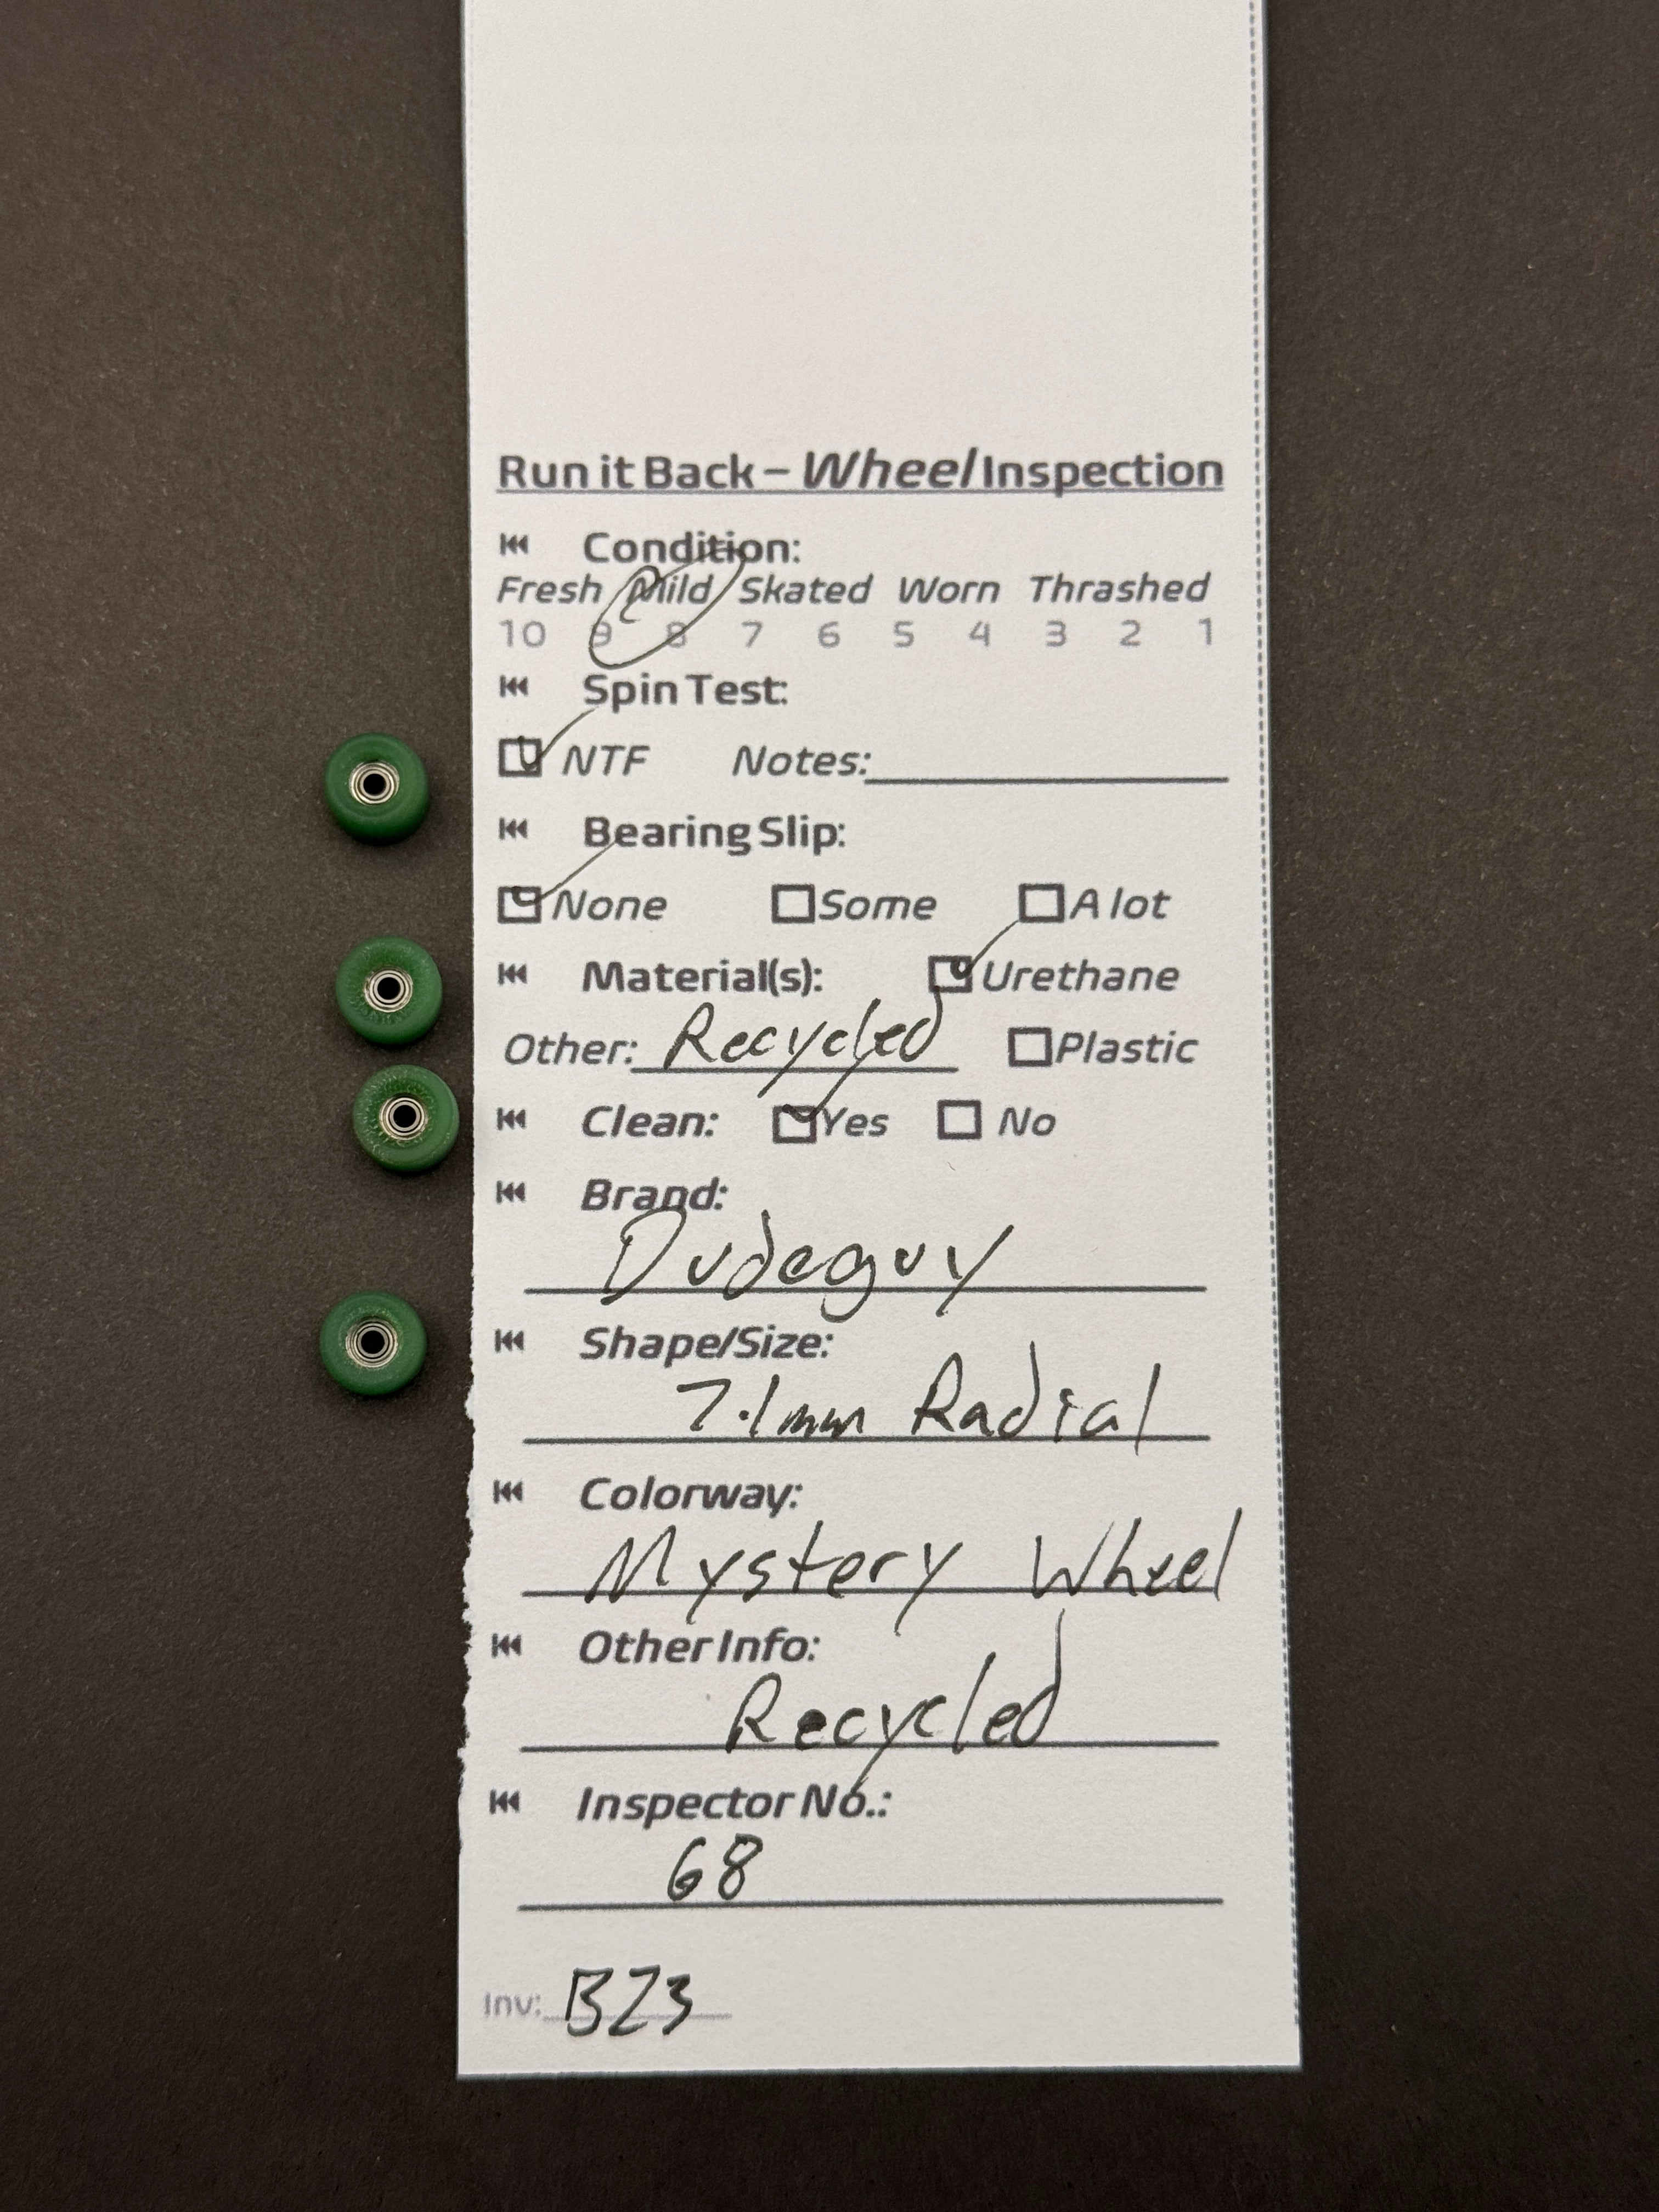 Run it Back – Wheel Inspection
Condition:
Fresh Mild Skated Worn Thrashed
10 9 8 7 6 5 4 3 2 1
Spin Test:
NTF Notes:
Bearing Slip:
None Some A lot
Material(s): Urethane
Other: Recycled Plastic
Clean: Yes No
Brand:
Dudeguy
Shape/Size:
7.1mm Radial
Colorway:
Mystery Wheel
Other Info:
Recycled
Inspector No.:
68
Inv: BZ3